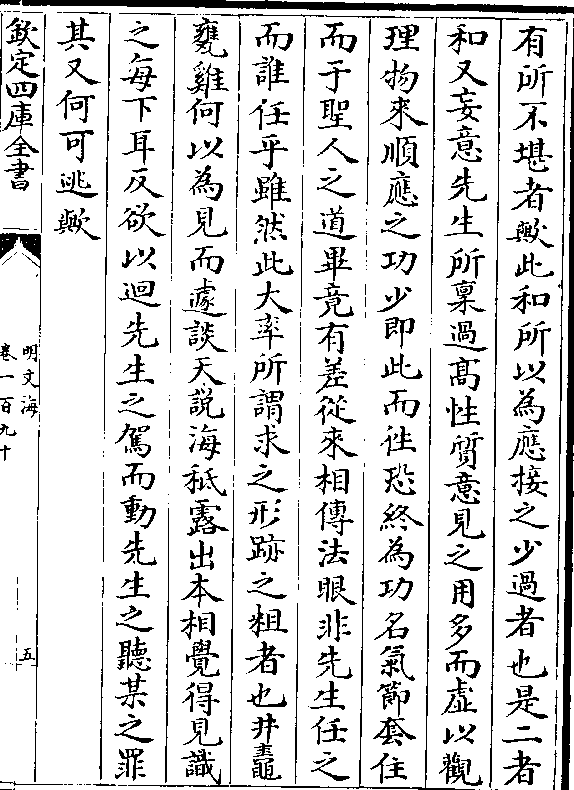 有所不堪者歟此和所以為應接之少過者也是二者
和又妄意先生所稟過髙性質意見之用多而虛以觀
理物來順應之功少即此而徃恐終為功名氣節套住
而于聖人之道畢竟有差從來相傳法眼非先生任之
而誰任乎雖然此大率所謂求之形跡之粗者也井鼃
甕雞何以為見而遽談天說海秪露出本相覺得見識
之每下耳反欲以迴先生之駕而動先生之聽某之罪
其又何可逃歟
欽定四庫全書
明文海
卷一百九十
五